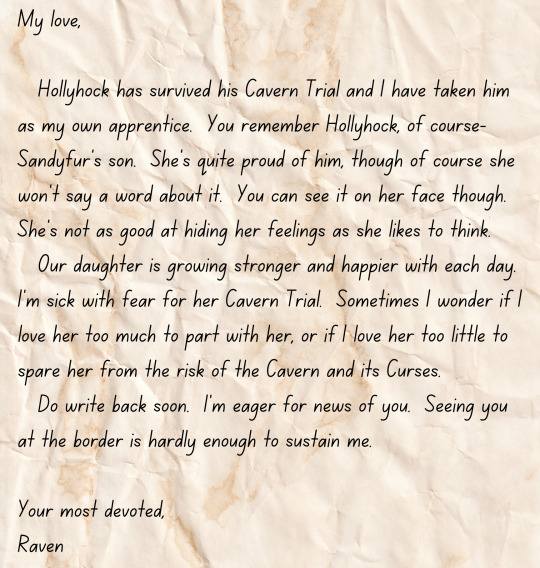 My love,
Hollyhock has survived his Cavern Trial and I have taken him
as my own apprentice. You remember Hollyhock, of course-
Sandyfur's son. She's quite proud of him, though of course she
won't say a word about it. You can see it on her face though.
She's not as good at hiding her feelings as she likes to think.
Our daughter is growing stronger and happier with each day.
I'm sick with fear for her Cavern Trial. Sometimes I wonder if I
love her too much to part with her, or if I love her too little to
spare her from the risk of the Cavern and its Curses.
Do write back soon. I'm eager for news of you. Seeing you
at the border is hardly enough to sustain me.
Your most devoted,
Raven